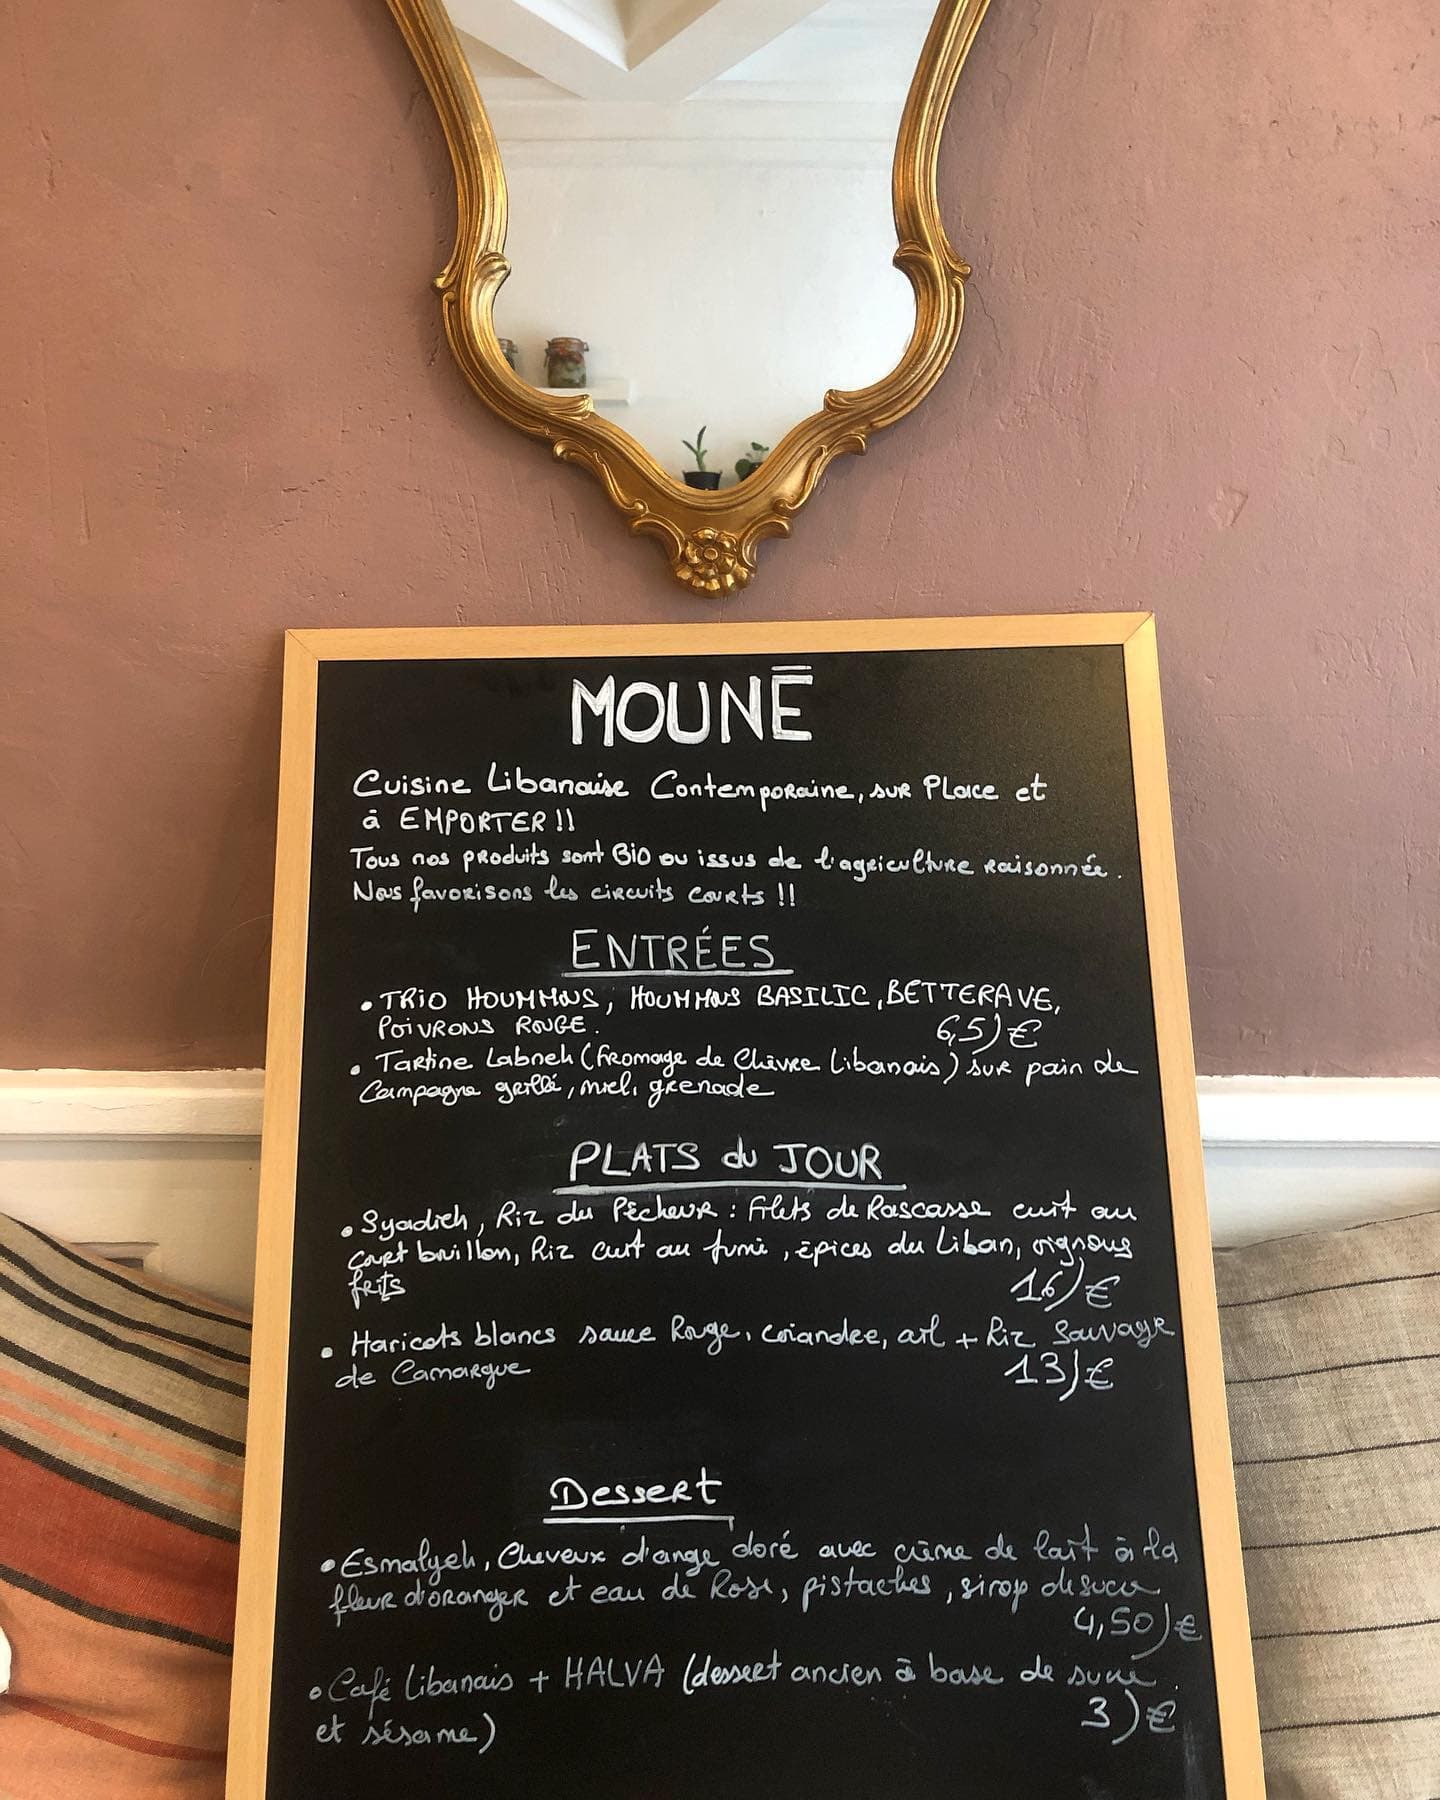 MOUNĒ
Cuisine Libanaise Contemporaine, sur Place et
à EMPORTER !!
Tous nos produits sont Bio ou issus de l'agriculture raisonnée.
Nous favorisons les circuits courts !!
ENTRÉES
• TRIO HOUMMOUS, HOUMMOUS BASILIC, BETTERAVE,
POIVRONS ROUGE. 6,5)€
• Tartine Labneh (fromage de Chèvre Libanais) sur pain de
Campagne grillé, miel, grenade
PLATS du JOUR
• Syadieh, Riz du Pêcheur : Filets de Rascasse cuit au
court bouillon, Riz cuit au fumé, épices du Liban, oignons
frits 16)€
• Haricots blancs sauce Rouge, coriandre, ail + Riz Sauvage
de Camargue 13)€
Dessert
• Esmalyeh, Cheveux d'ange doré avec crème de lait à la
fleur d'oranger et eau de Rose, pistaches, sirop de sucre
4,50)€
• Café Libanais + HALVA (dessert ancien à base de sucre
et sésame) 3)€